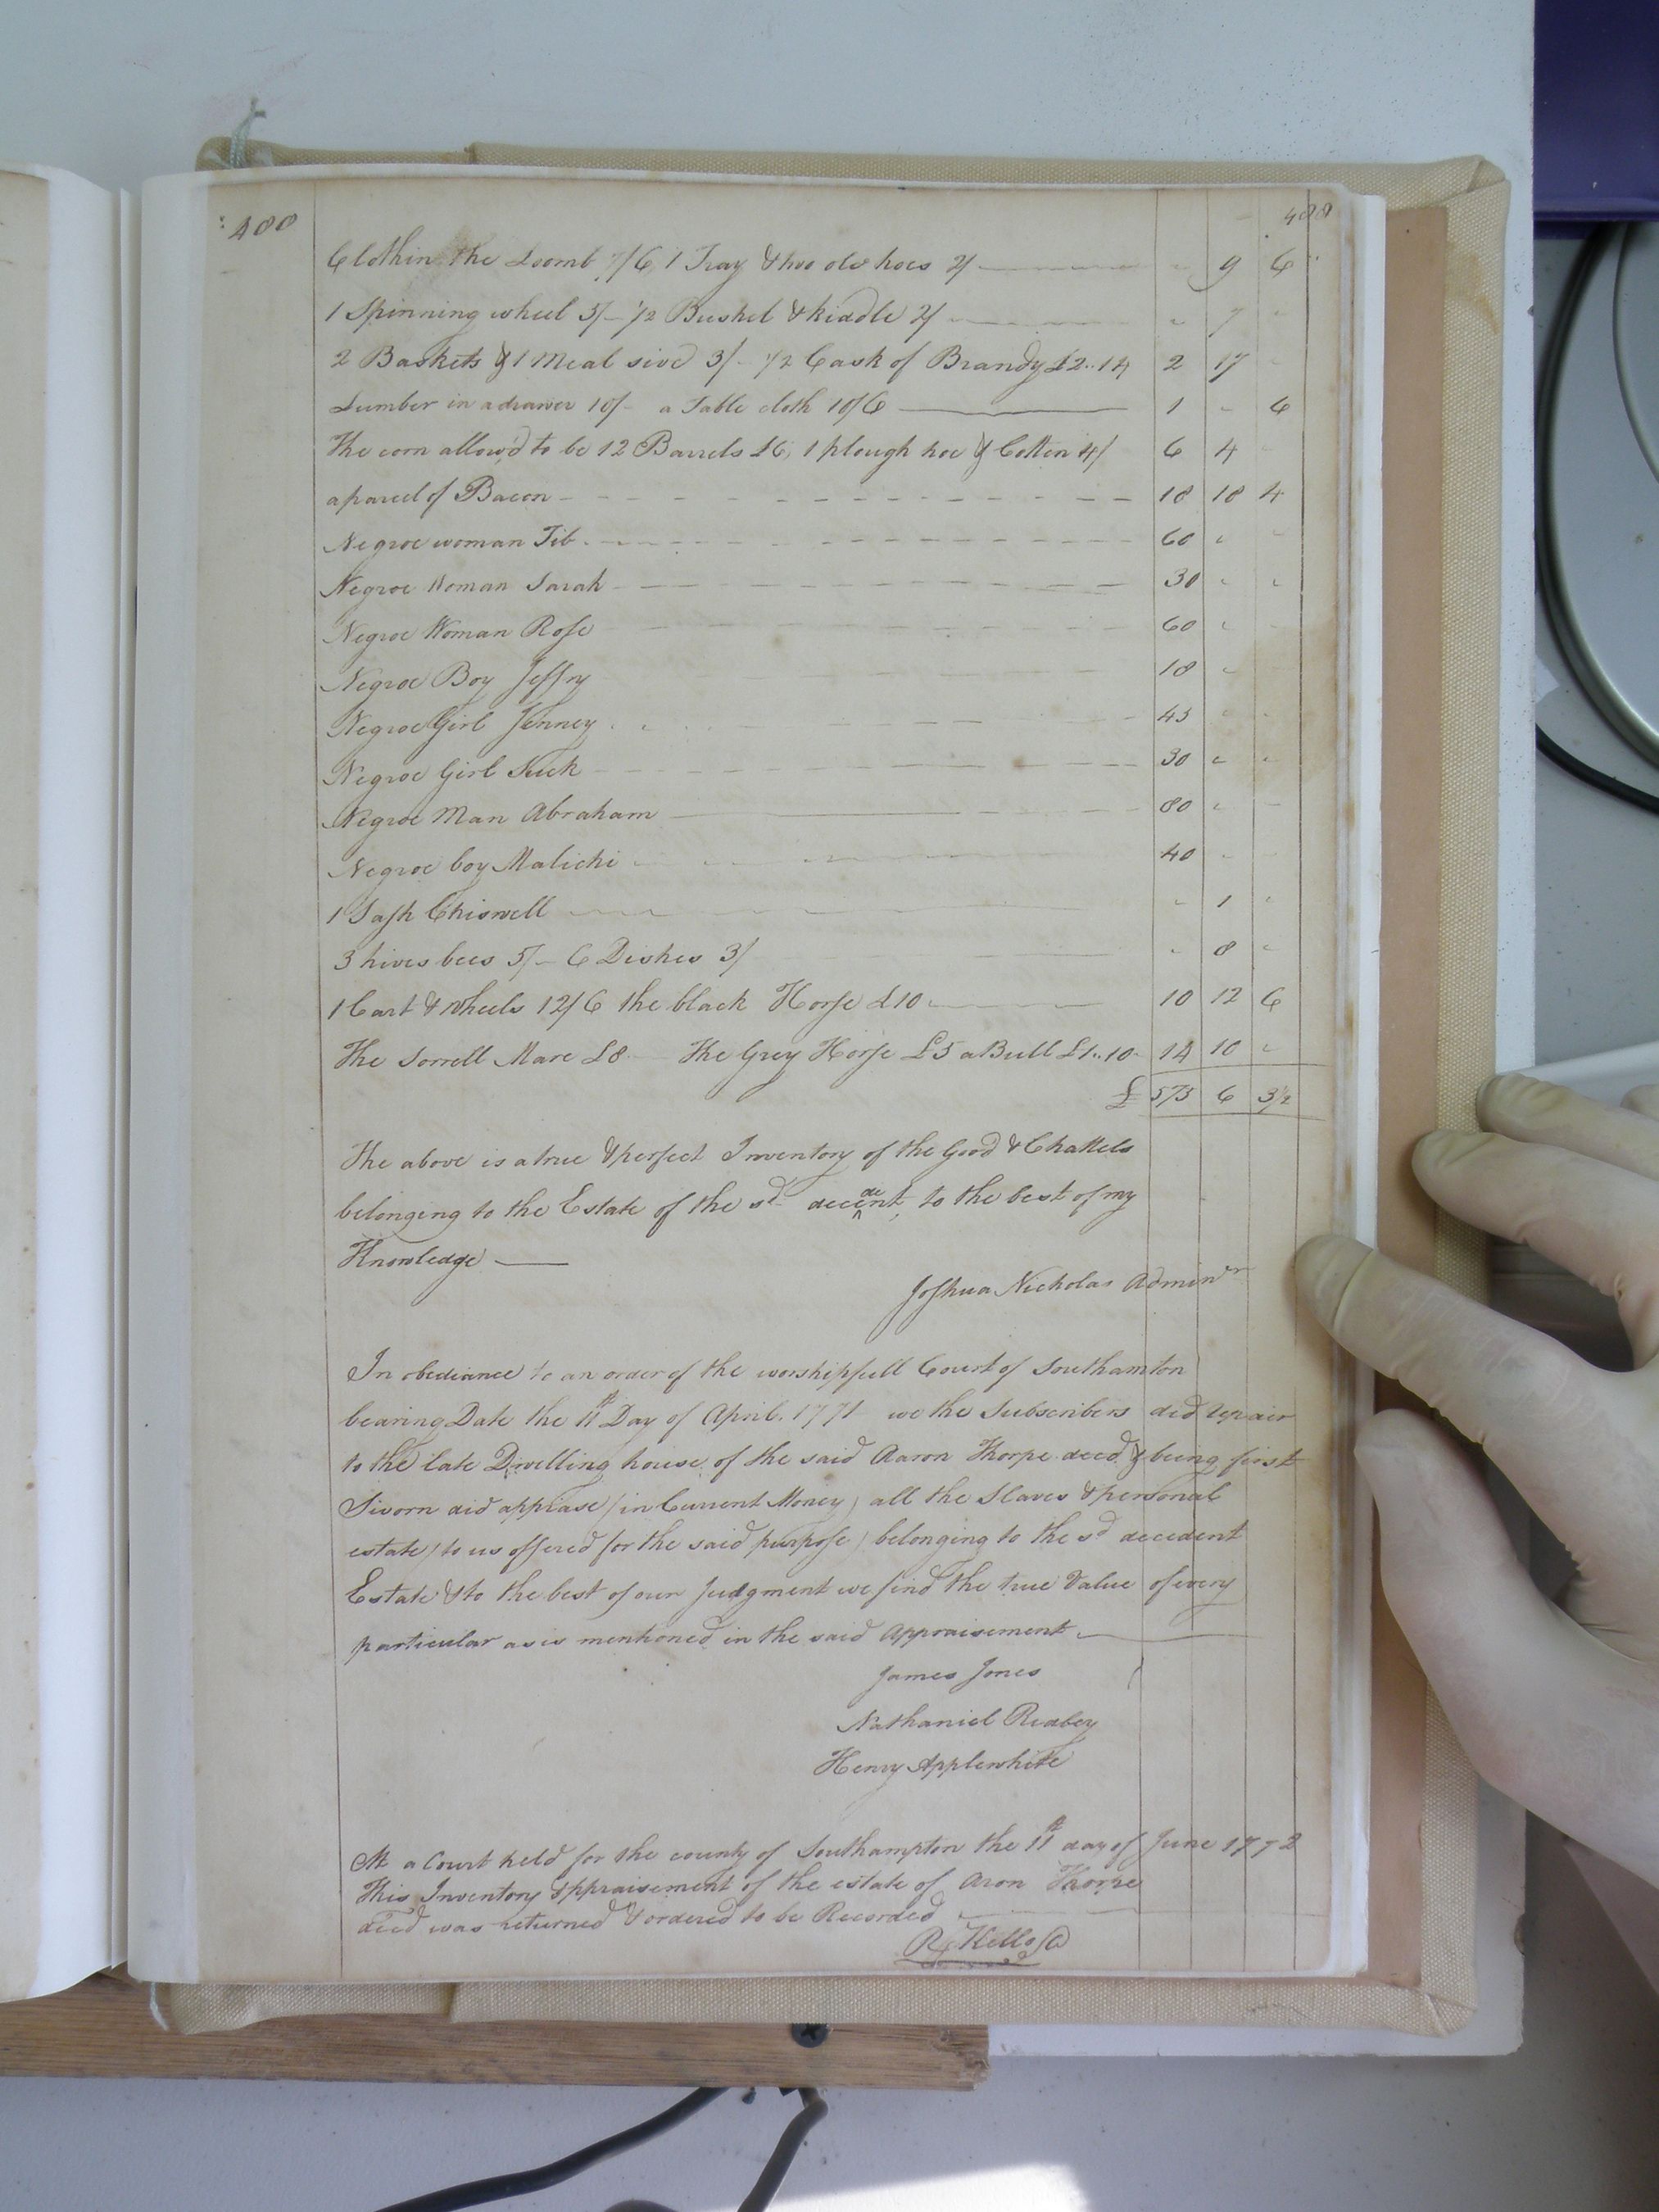 400 488
Clothin the Loomb 7/6, 1 Tray & two old hoes 2/ " 9 6
1 Spinning wheel 5/ - 1/2 Bushel & kiddle 2/ " 7 "
2 Baskets & 1 Meal sive 3/ - 1/2 Cask of Brandy £2..14 2 17 "
Lumber in a drawer 10/- a Table cloth 10/6 1 " 6
The corn allow'd to be 12 Barrels £6, 1 plough hoe & Cotten 4/ 6 4 "
a parcel of Bacon 18 18 4
Negroe woman Tib 60 " "
Negroe Woman Sarah 30 " "
Negroe Woman Rose 60 " "
Negroe Boy Jeffry 18 "
Negroe Girl Jenney 45 " "
Negroe Girl Suck 30 " "
Negroe Man Abraham 80 " "
Negroe boy Malichi 40 " "
1 Sash Chiswell " 1 "
3 hives bees 5/ - 6 Dishes 3/ " 8 "
1 Cart & wheels 12/6 the black Horse £10 10 12 6
The Sorrell Mare £8 The Grey Horse £5 a Bull £1..10 14 10 "
£ 573 6 3 1/2
The above is a true & perfect Inventory of the Good & Chattels
belonging to the Estate of the sd. decedent, to the best of my
Knowledge
Joshua Nicholas Adminr
In obediance to an order of the worshipfull Court of Southamton
bearing Date the 11th Day of April. 1771 we the Subscribers did repair
to the late Dwelling house of the said Aaron Thorpe deced & being first
Sworn did appriase (in Current Money) all the Slaves & personal
estate (to us offered for the said purpose) belonging to the sd decedent
Estate & to the best of our Judgment we find the true Value of every
particular as is mentioned in the said Appraisement
James Jones
Nathaniel Ridley
Henry Applewhite
At a Court held for the county of Southampton the 11th day of June 1772
This Inventory & Appraisement of the estate of Aron Thorpe
deced was returned & ordered to be Recorded
R Kello